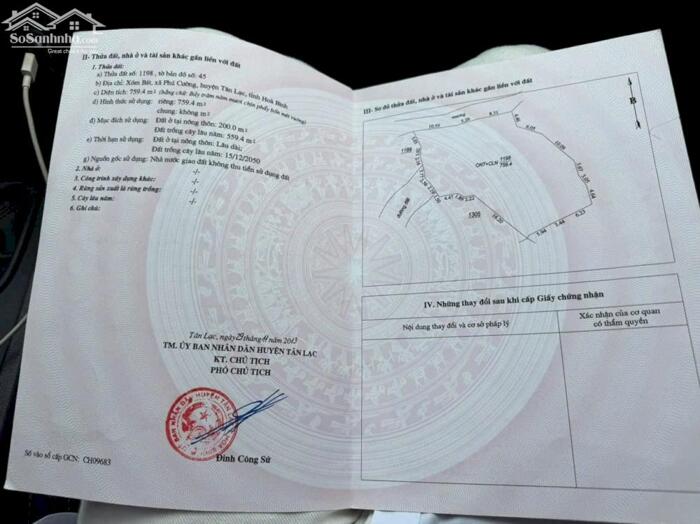 SoSanhnha
II- Thửa đất, nhà ở và tài sản khác gắn liền với đất
1. Thửa đất:
a) Thửa đất số: 1198 , tờ bản đồ số: 45
b) Địa chỉ: Xóm Bát, xã Phú Cường, huyện Tân Lạc, tỉnh Hoà Bình
c) Diện tích: 759.4 m² (bằng chữ: Bảy trăm năm mươi chín phẩy bốn mét vuông)
d) Hình thức sử dụng: riêng: 759.4 m²
chung: không m²
đ) Mục đích sử dụng: Đất ở tại nông thôn: 200.0 m²
Đất trồng cây lâu năm: 559.4 m²
e) Thời hạn sử dụng: Đất ở tại nông thôn: Lâu dài;
Đất trồng cây lâu năm: 15/12/2050
g) Nguồn gốc sử dụng: Nhà nước giao đất không thu tiền sử dụng đất
2. Nhà ở: -/-
3. Công trình xây dựng khác: -/-
4. Rừng sản xuất là rừng trồng: -/-
5. Cây lâu năm: -/-
6. Ghi chú:
Tân Lạc, ngày 29 tháng 11 năm 2013
TM. ỦY BAN NHÂN DÂN HUYỆN TÂN LẠC
KT. CHỦ TỊCH
PHÓ CHỦ TỊCH
Đinh Công Sứ
Số vào sổ cấp GCN: CH09683
III- Sơ đồ thửa đất, nhà ở và tài sản khác gắn liền với đất
B
mương
1199
ONT+CLN 1198
759.4
đường đất
1305
IV. Những thay đổi sau khi cấp Giấy chứng nhận
Nội dung thay đổi và cơ sở pháp lý
Xác nhận của cơ quan
có thẩm quyền